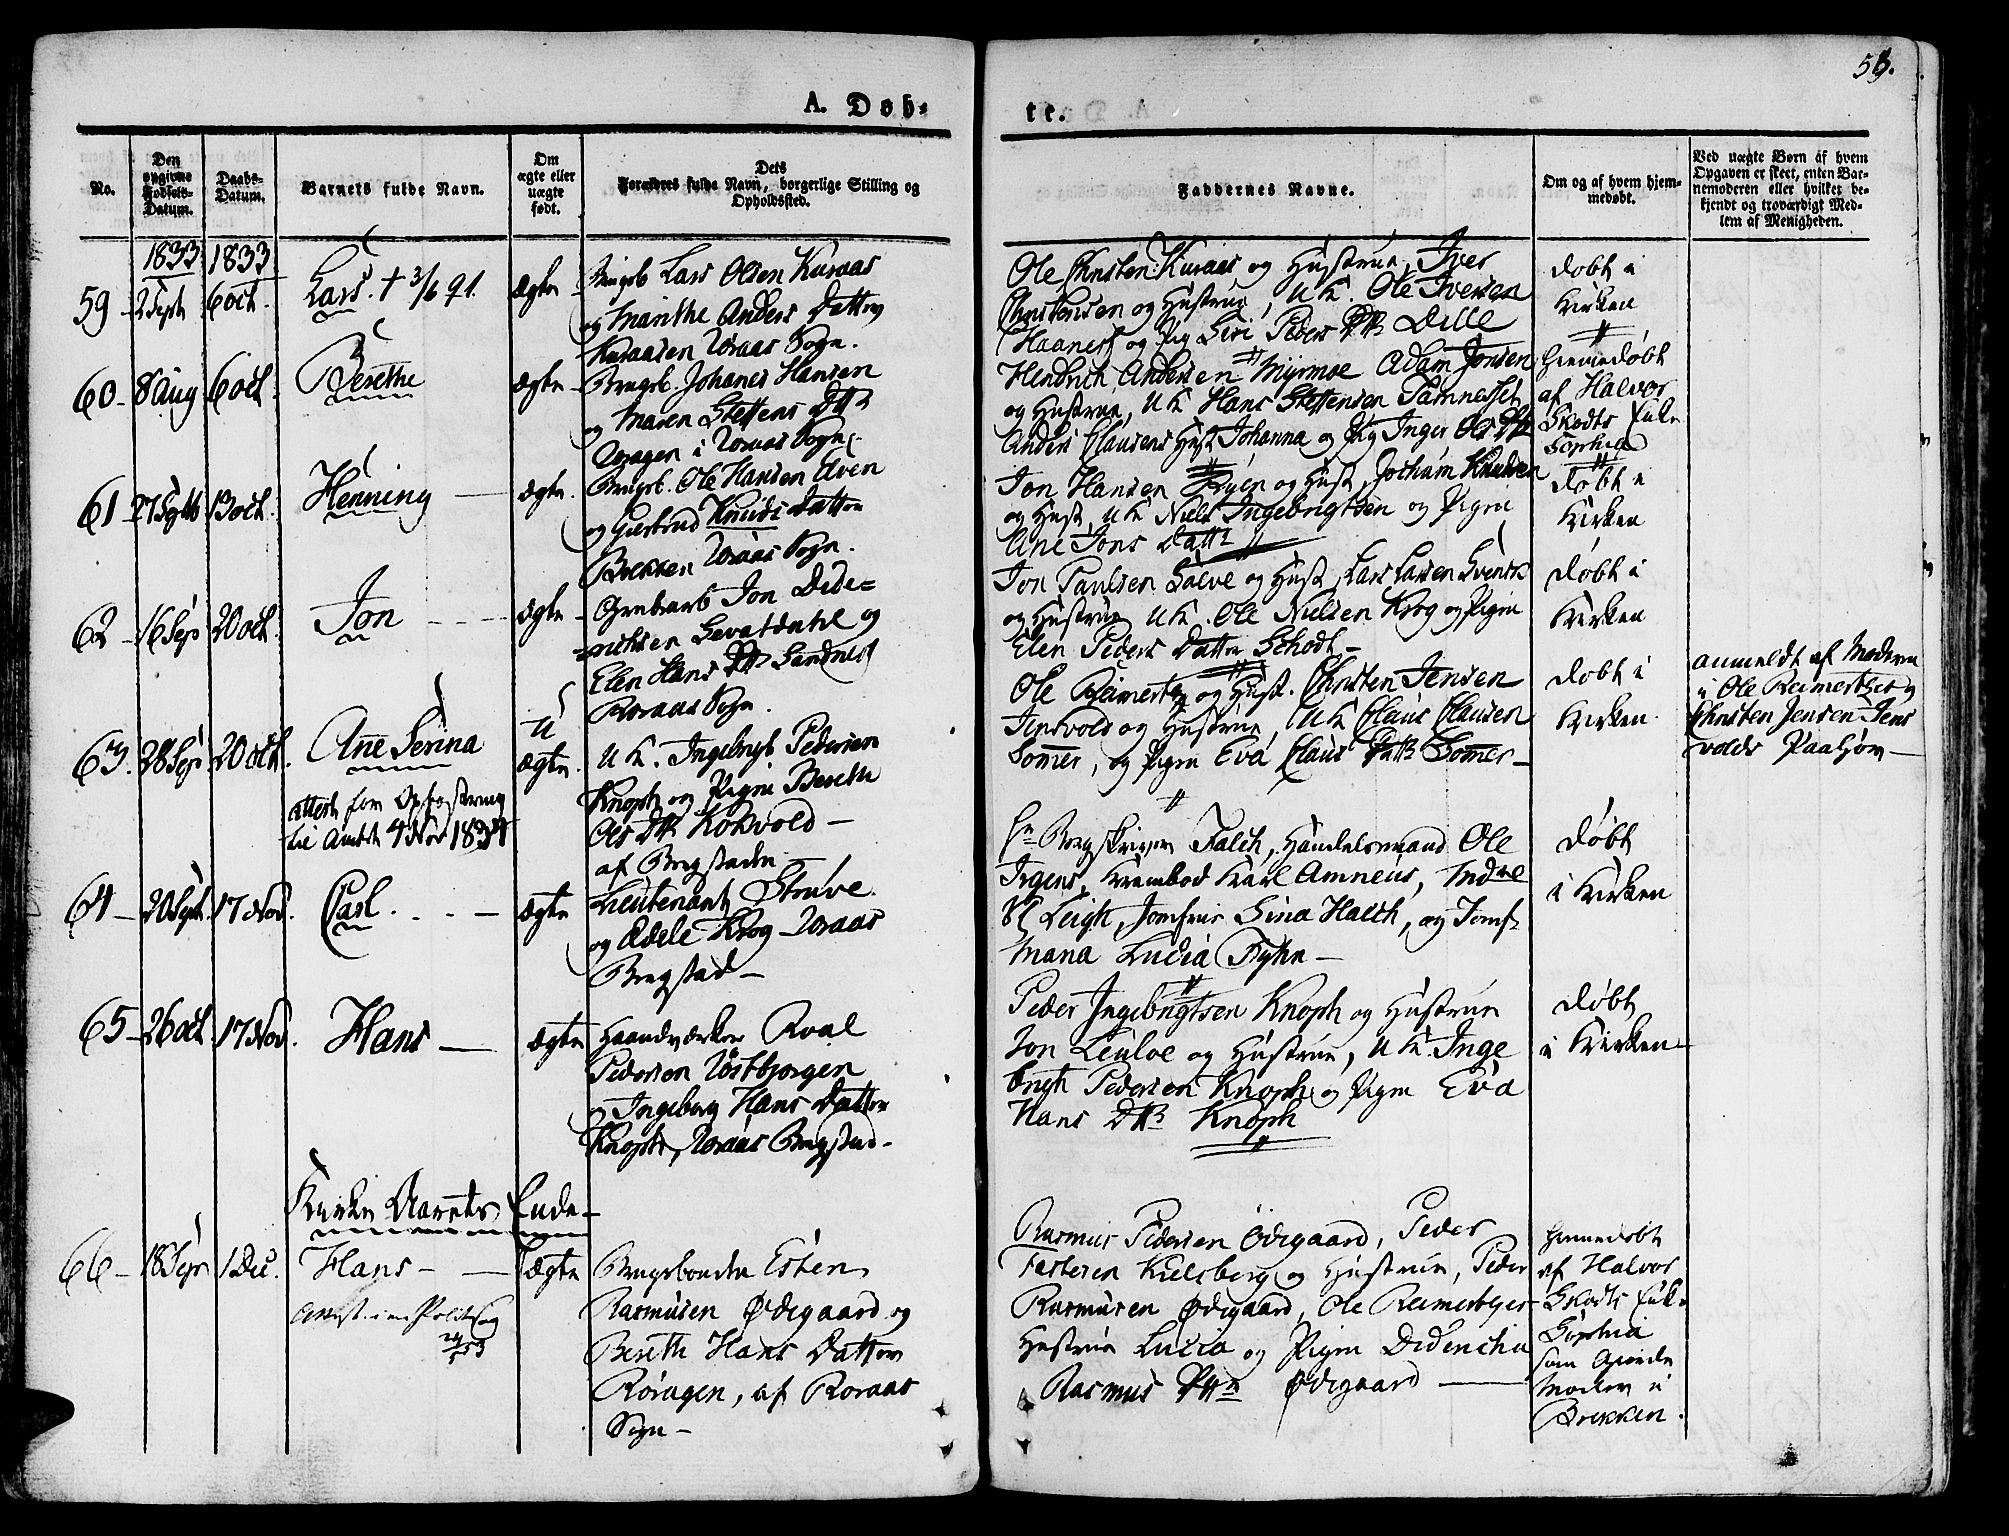 53.
A. Døb-
te.
No.
Den opgivne Fødsels-Datum.
Daabs-Datum.
Barnets fulde Navn.
Om ægte eller uægte født.
Dets Forældres fulde Navn, borgerlige Stilling og Opholdssted.
Faddernes Navne.
Om og af hvem hjem-medøbt.
Ved uægte Børn af hvem Opgaven er skeet, enten Bar-nemoderen eller hvilket be-kjendt og troværdigt Med-lem af Menigheden.
1833 1833
59 2 Sept 6 oct. Lars. † 3/6 91. ægte
Brugsb Lars Olsen Kuraas
og Marithe Anders Datter
Kuraasen Røraas Sogn.
Ole Christen: Kuraas og Hustrue, Iver
Christensen og Hustrue, U K. Ole Iversen
Haanes og Pig Siri Peders Dtt Dille
døbt i
Kirken
60 8 Aug 6 oct. Berethe ægte
Brugsb. Johanes Hansen
og Maren Steffens Dtt
i Røraas Sogn.
Hendrich Andersen Myrmoe Adam Jonsen
og Hustrue, U K Hans Steffensen Tamnesset
Anders Clausens Hust Johanna og Pig Inger Ols Dtt
Hiemedøbt
af Halvor
Skodts Enke
Sophia
61 27 Septb 13 oct. Henning ægte.
Brugsb. Ole Hansen Elven
og Giertrud Knuds Datter
Brekken Røraas Sogn.
Jon Hansen Ryen og Hust, Jochum Knudsen
og Hust, U K Niels Ingebrigtsen og Pigen
Ane Jons Datt
døbt i
Kirken
62 16 Sep 20 oct. Jon ægte
Jon Dide=
richsen og
Elen Hans Dtt Sandnes
Røraas Sogn.
Jon Paulsen Galve og Hust, Lars Larsen Svensk
og Hustrue U K. Ole Nielsen Krog og Pigen
Elen Peders Datter Schodt
døbt i
Kirken
63. 28 Sep 20 oct. Ane Serina u
ægte.
attest for Opfostring
til Amtet 4 Nov 1834
U K. Ingebrigt Pedersen
Knoph og Pigen Berethe
Ols Dtt Kokvold
af Bergstaden
Ole Reimers og Hust. Christen Jensen
Jensvold og Hustrue, U K Claus Clausen
Somer, og Pigen Eva Claus Datt Somer
døbt i
Kirken.
anmeldt af Moderen
i Ole og
Christen Jensen Jens
volds Paahør
64 20 Sept. 17 Nov. Carl. ægte
Lieutenant Strøve
og Ædele Krog Røraas
Bergstad
Hr Bergskriver Falch, Handelsmand Ole
Irgens, Krambod Karl Amneus,
Leigh, Jomfrue Sina Halck, og Jomf
Mana Lucia Tyhn
døbt
i Kirken
65 26 oct. 17 Nov. Hans ægte
Haandværker Roal
Pedersen Østbjørgen
og Ingeborg Hans Datter
Knoph, Røraas Bergstad.
Peder Ingebrigtsen Knoph og Hustrue
Jon Leuloe og Hustrue, U K. Inge
brigt Pedersen Knoph og Pigen Eva
Hans Dtt Knoph
døbt
i Kirken
Kirke Aarets Ende
66 18 Sep 1 Dec. Hans ægte
Attest i en Politisag
Brugsbonden Esten
Rasmusen Ødegaard og
Bereth Hans Datter
Røragen, af Røraas
Sogn
Rasmus Pedersen Ødegaard, Peder
Kielsberg og Hustrue, Peder
Rasmusen Ødegaard, Ole
Hustrue Lucia og Pigen Diderichie
Rasmus Dtt Ødegaard
Hiemedøbt
af Halvor
Skodts Enke
Sophia
som
Moder i
Brekken.